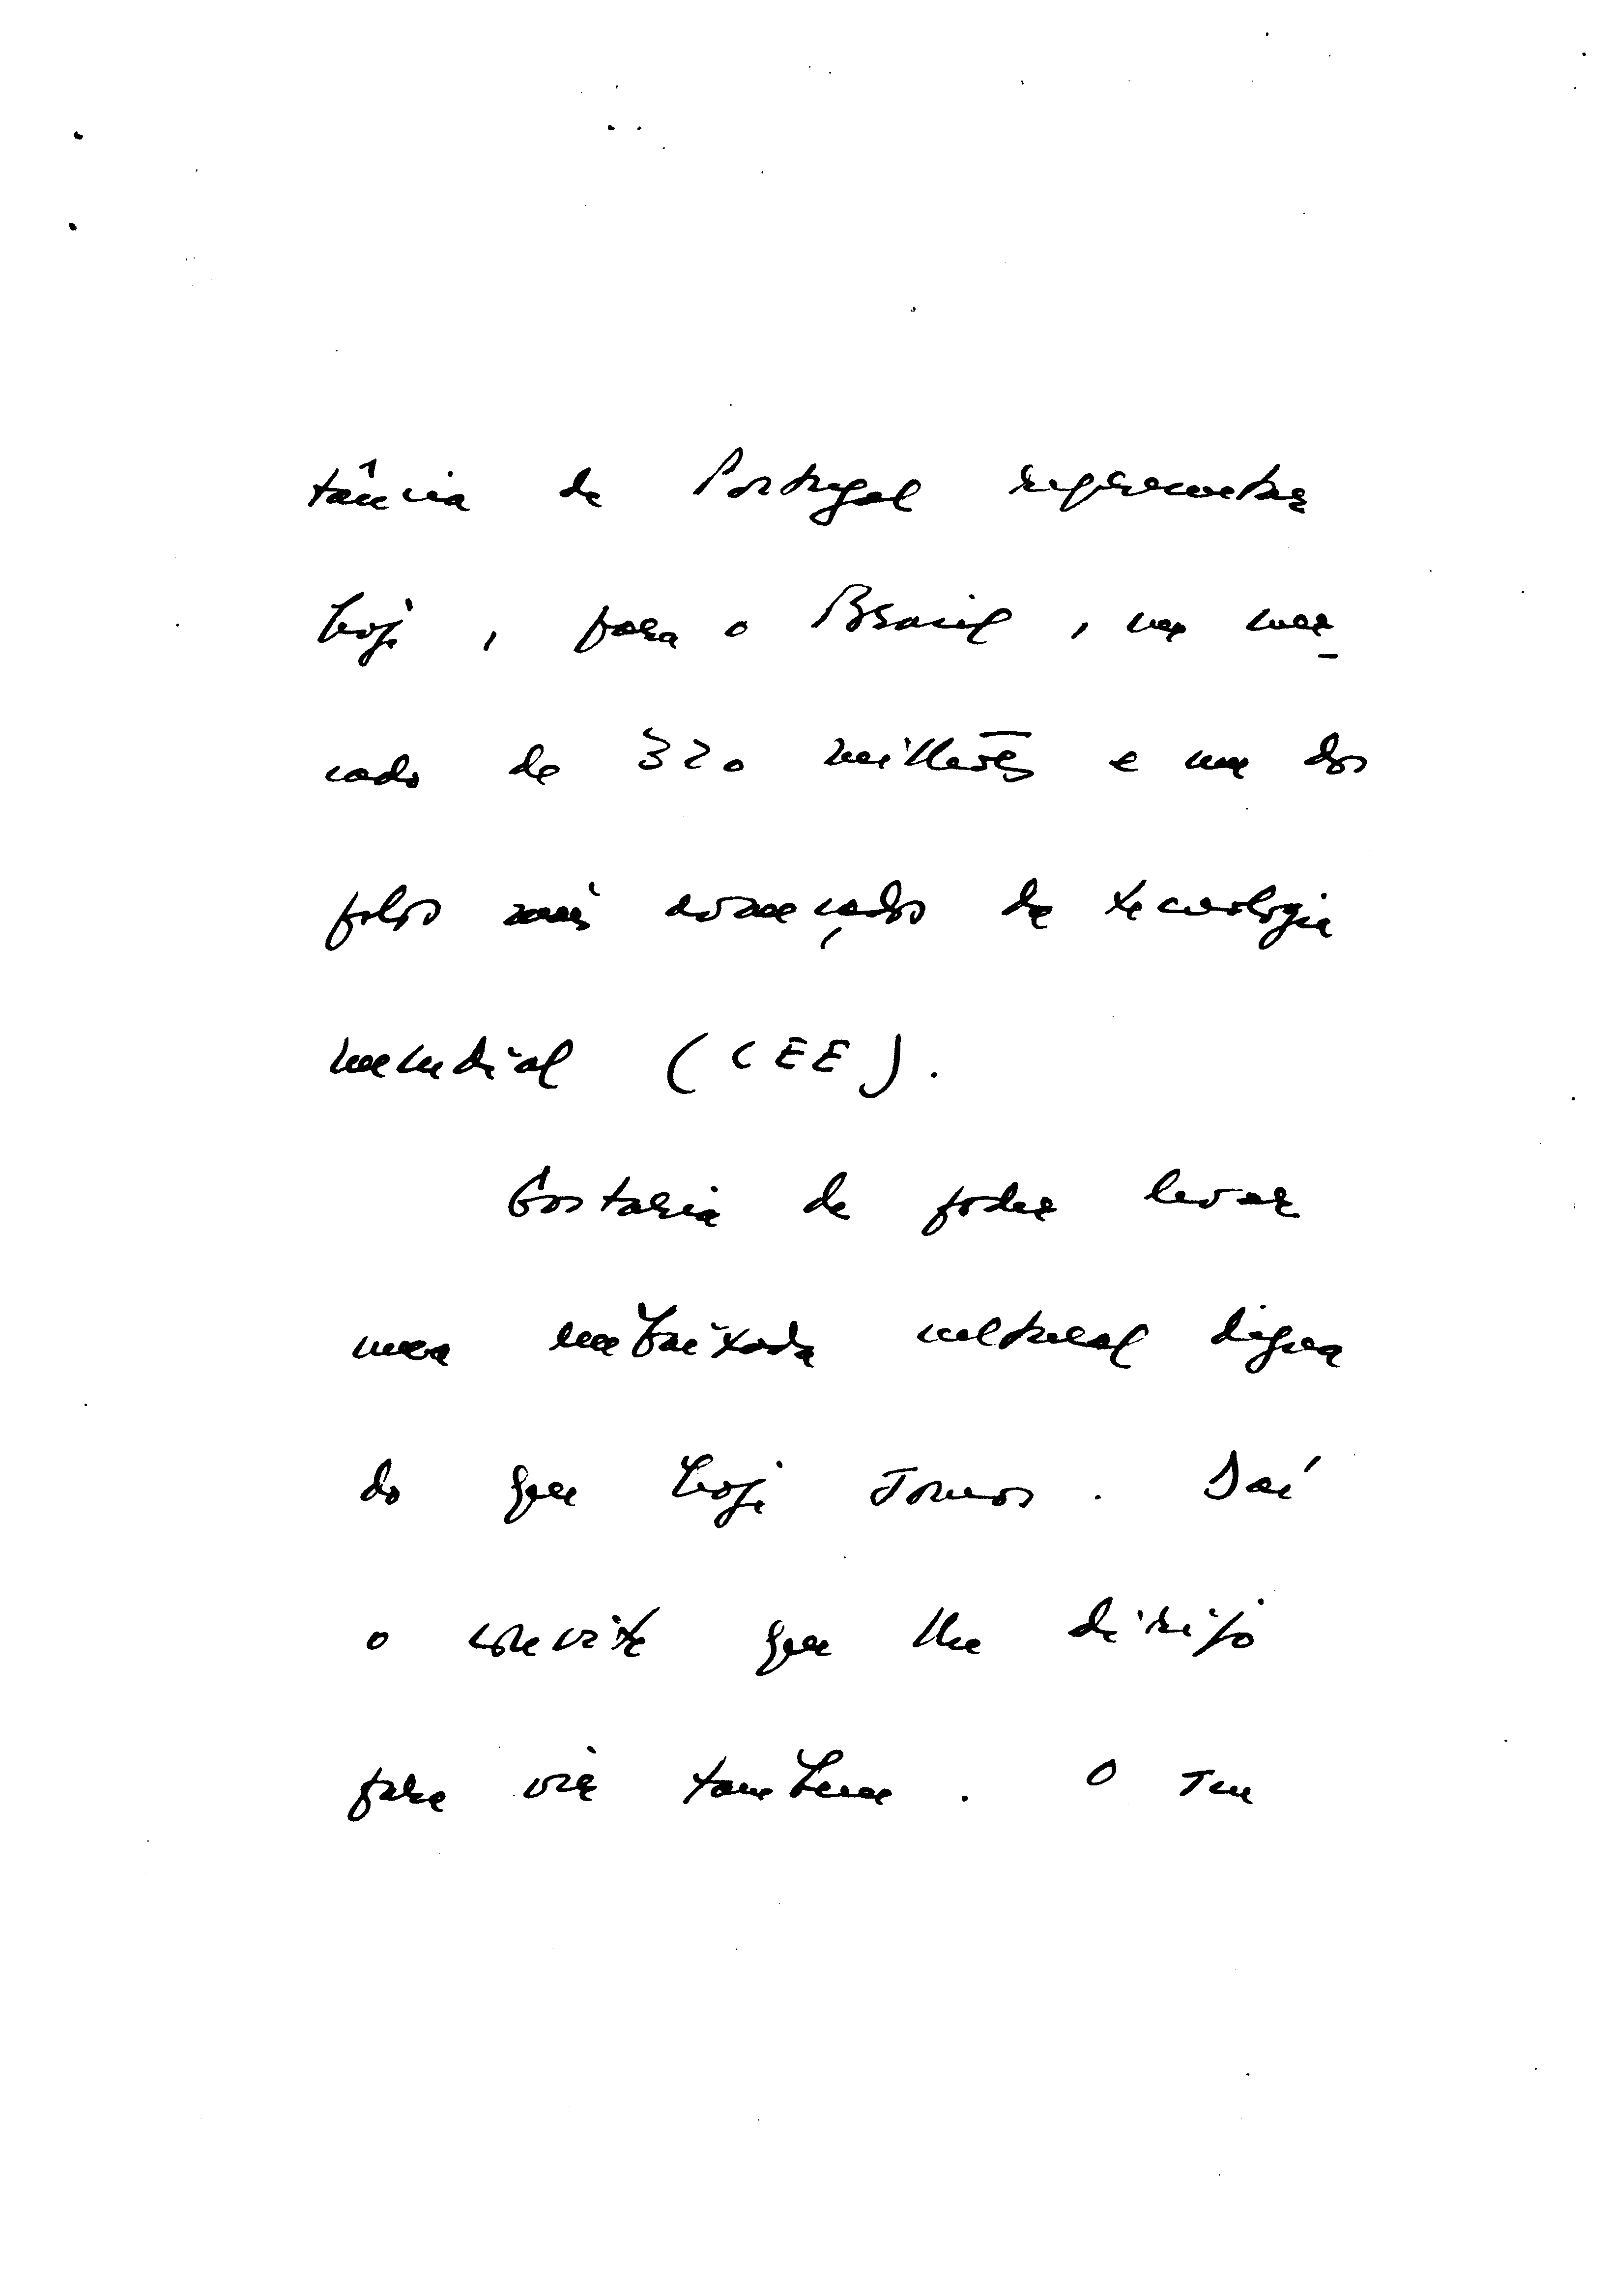 tância de Portugal representar
hoje, para o Brasil, um mer-
cado de 320 milhões e um dos
polos mais avançados da tecnologia
mundial (CEE).
Gostaria de poder levar
uma embaixada cultural digna
do que hoje somos. Daí
o convite que lhe dirijo
para vir também. O seu